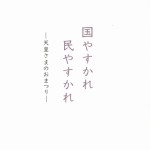 国やすかれ
民やすかれ
―天皇さまのおまつり―